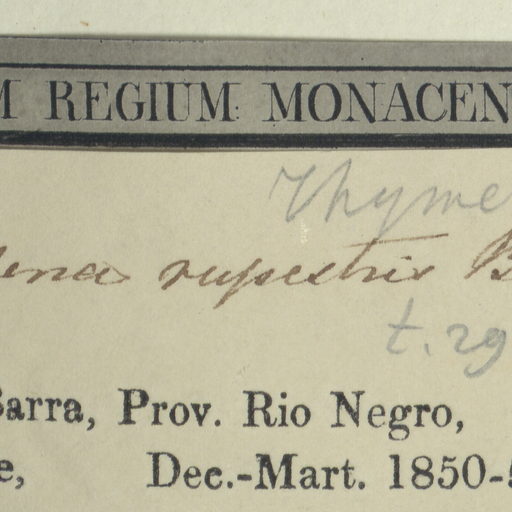 M REGIUM MONACEN
Thyme
ena rupestris B
t. 29
Barra, Prov. Rio Negro,
e, Dec.-Mart. 1850-5